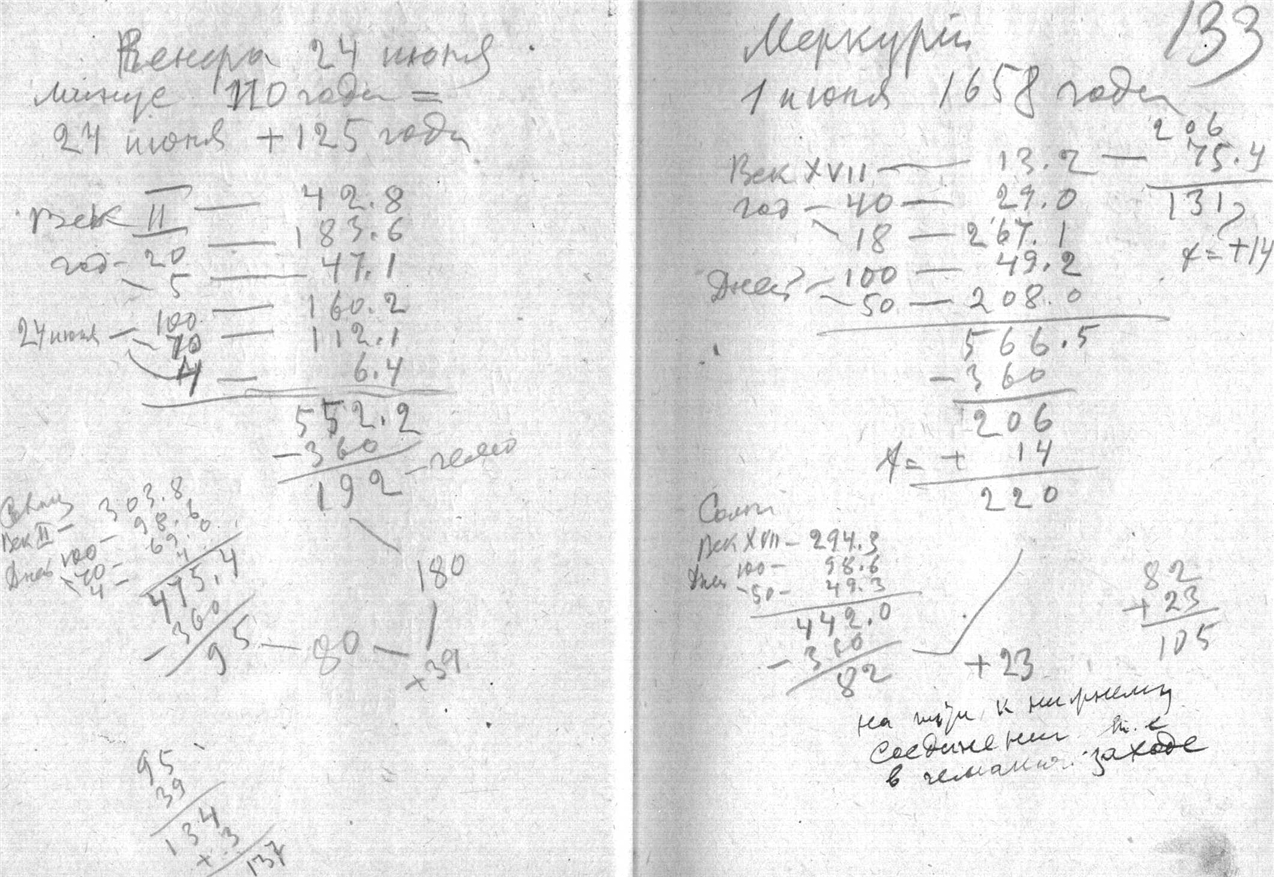 Венера 24 июня
минус 110 годы =
24 июня + 125 годы
Век II — 42.8
год - 20 — 183.6
5 — 47.1
24 июня — 100 — 160.2
70 — 112.1
4 — 6.4
552.2
- 360
192 - гелио
Век II - 303.8
Дней 100 - 98.6
70 - 69.0
4 - 4
475.4
- 360
95 — 80 — +39
180
95
39
134
+ 3
137
133
Меркурий
1 июня 1658 годы
Век XVII — 13.2 — 75.4
206
131
год - 40 — 29.0
18 — 267.1
x = +14
Дней - 100 — 49.2
50 — 208.0
566.5
- 360
206
x = + 14
220
Век XVII - 294.3
Дней 100 - 98.6
- 50 - 49.3
442.0
- 360
82
+ 23
82
+ 23
105
на пути к нижнему
соединению т.е
в заходе